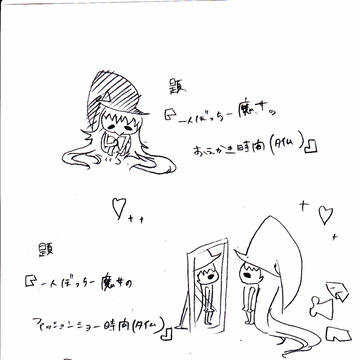 題
『一人ぼっちー魔女の
おえかき時間(タイム)』
題
『一人ぼっちー魔女の
ファッションショー時間(タイム)』